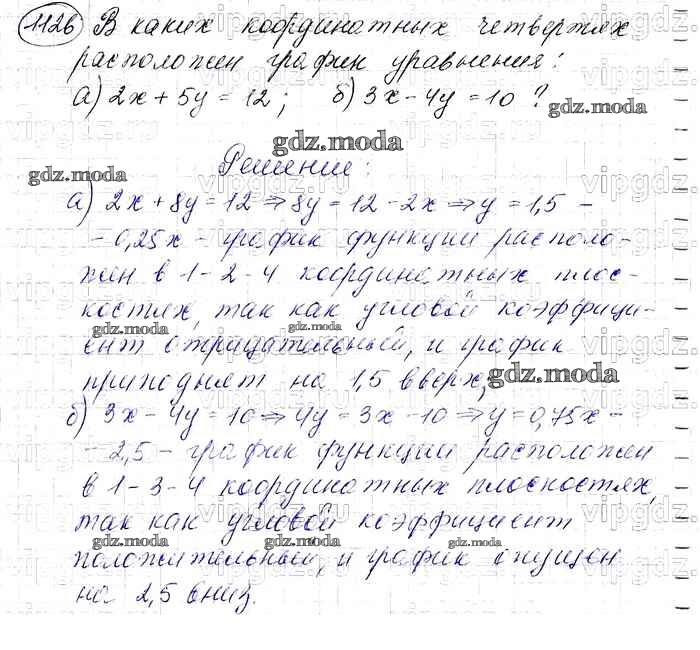 1126 В каких координатных четвертях
расположен график уравнения:
а) 2x + 5y = 12; б) 3x - 4y = 10 ?
gdz.moda
gdz.moda
Решение:
gdz.moda
а) 2x + 8y = 12 ⇒ 8y = 12 - 2x ⇒ y = 1,5 -
- 0,25x - график функции располо-
жен в 1 - 2 - 4 координатных плос-
костях, так как угловой коэффици-
gdz.moda gdz.moda
ент отрицательный, и график
приподнят на 1,5 вверх;
gdz.moda
б) 3x - 4y = 10 ⇒ 4y = 3x - 10 ⇒ y = 0,75x -
- 2,5 - график функции расположен
в 1 - 3 - 4 координатных плоскостях,
так как угловой коэффициент
gdz.moda gdz.moda gdz.moda
положительный, и график опущен
на 2,5 вниз.